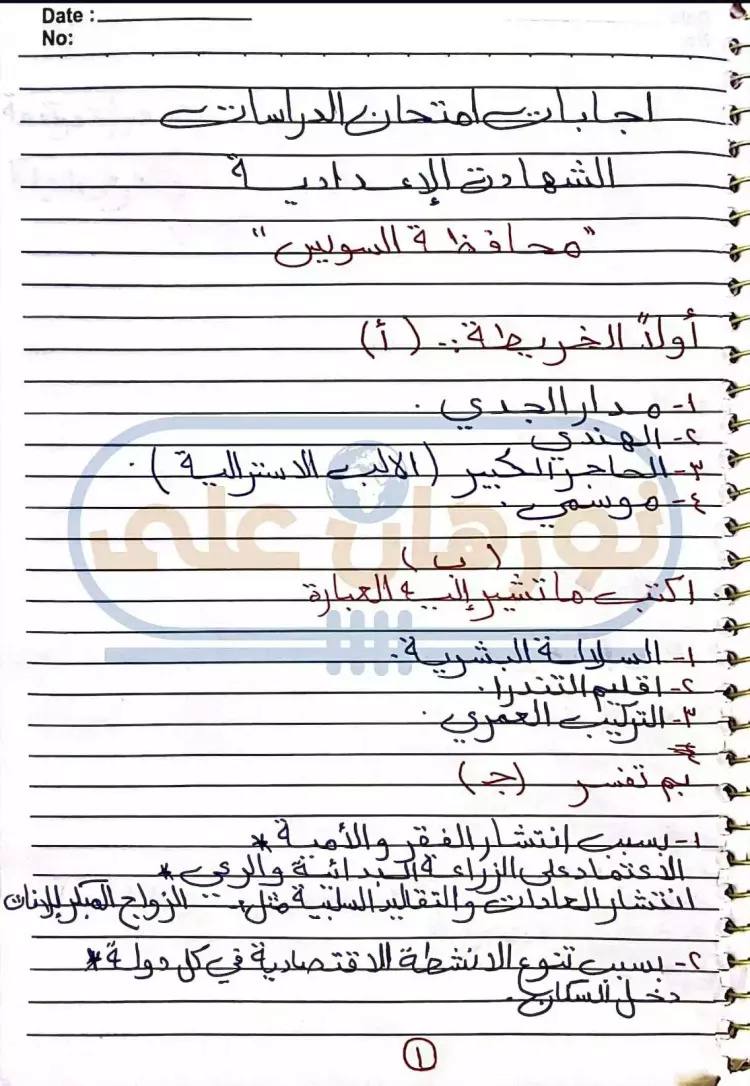 Date :
No:
اجابات امتحان الدراسات
الشهادة الإعدادية
"محافظة السويس"
أولاً الخريطة .. (أ)
١- مدار الجدي .
٢- الهندي
٣- الحاجز الكبير (الالب الاسترالية) .
٤- موسمي .
نورهان على
(ب)
اكتب ما تشير إليه العبارة
١- السلالة البشرية .
٢- اقليم التندرا .
٣- التركيب العمري .
بم تفسر (جـ)
١- بسبب انتشار الفقر والأمية *
الاعتماد على الزراعة البدائية والرعي *
انتشار العادات والتقاليد السلبية مثل .. الزواج المبكر للإناث
٢- بسبب تنوع الانشطة الاقتصادية في كل دولة *
دخل السكان .
١